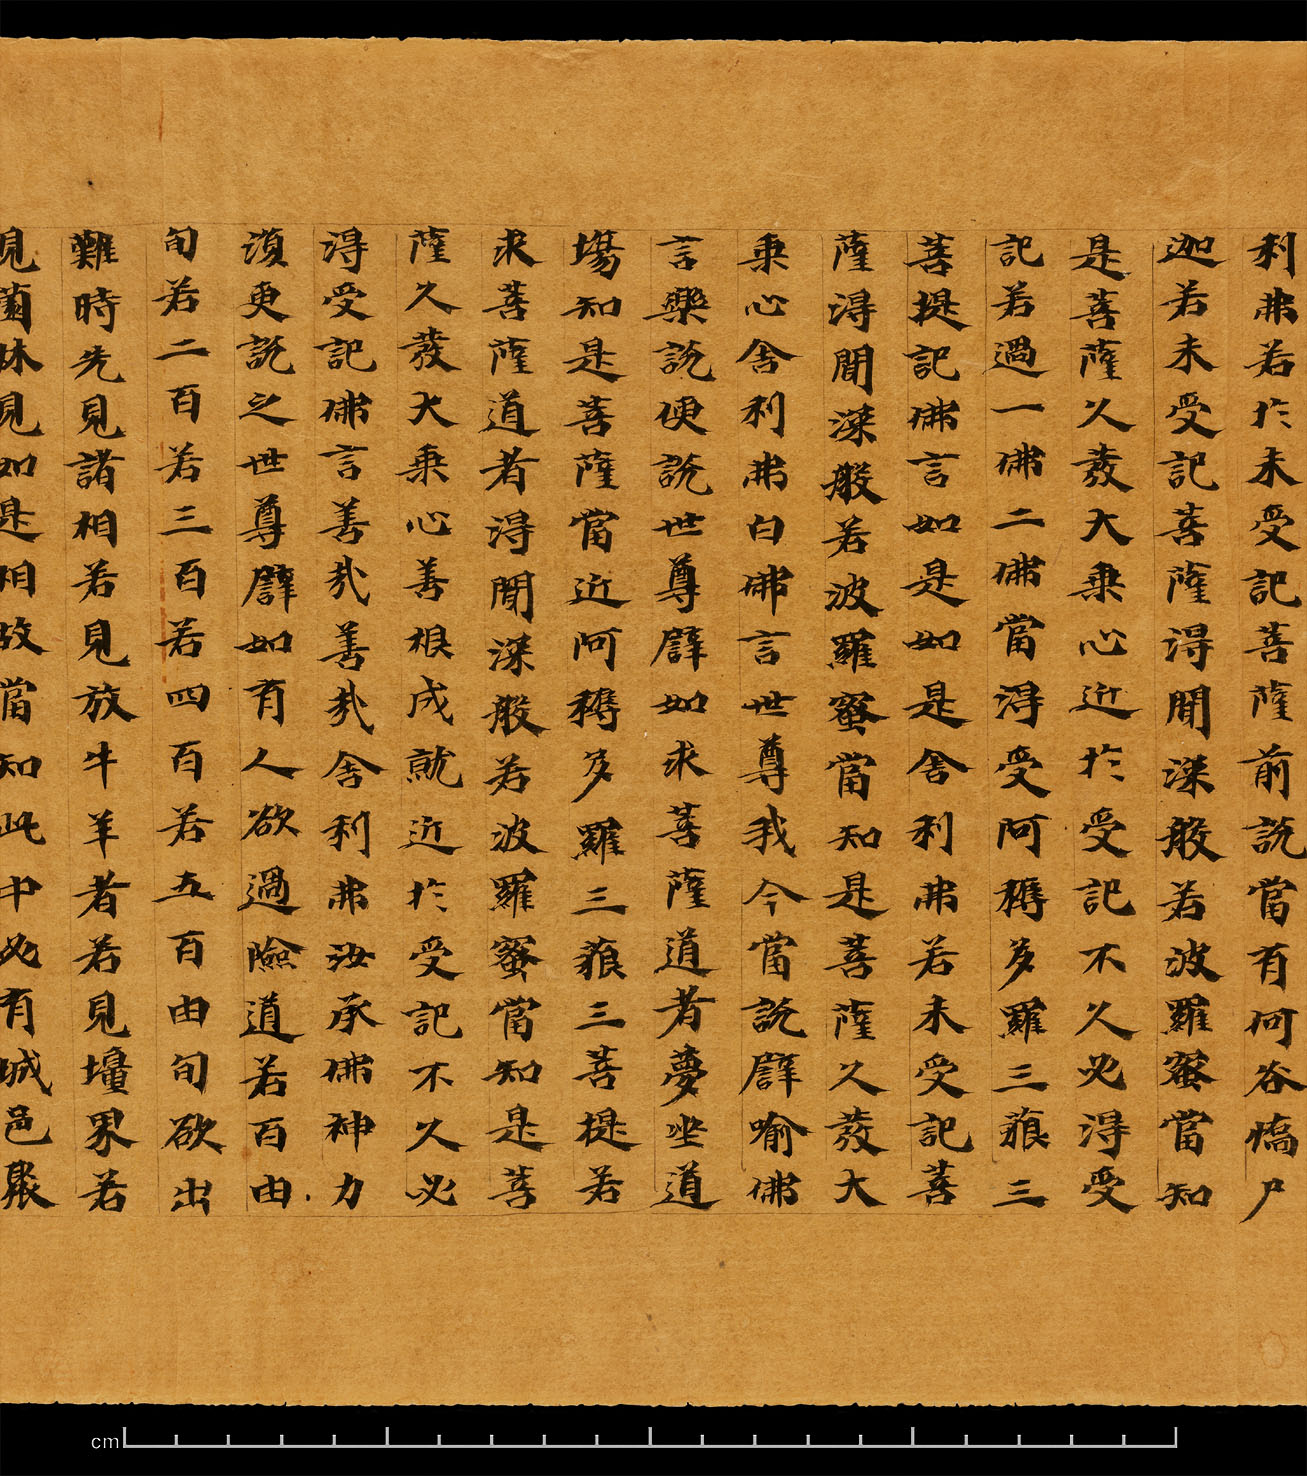 利弗若於未受記菩薩前說當有何咎憍尸
迦若未受記菩薩淂聞深般若波羅蜜當知
是菩薩久發大乗心近於受記不久必淂受
記若過一佛二佛當淂受阿耨多羅三藐三
菩提記佛言如是如是舍利弗若未受記菩
薩淂聞深般若波羅蜜當知是菩薩久發大
乗心舍利弗白佛言世尊我今當說譬喻佛
言樂說便說世尊譬如求菩薩道者夢坐道
場知是菩薩當近阿耨多羅三藐三菩提若
求菩薩道者淂聞深般若波羅蜜當知是菩
薩久發大乗心善根成就近於受記不久必
淂受記佛言善哉善哉舍利弗汝承佛神力
湏更說之世尊譬如有人欲過險道若百由
旬若二百若三百若四百若五百由旬欲出
難時先見諸相若見放牛羊者若見壃界若
見薗林見如是相故當知此中必有城邑聚